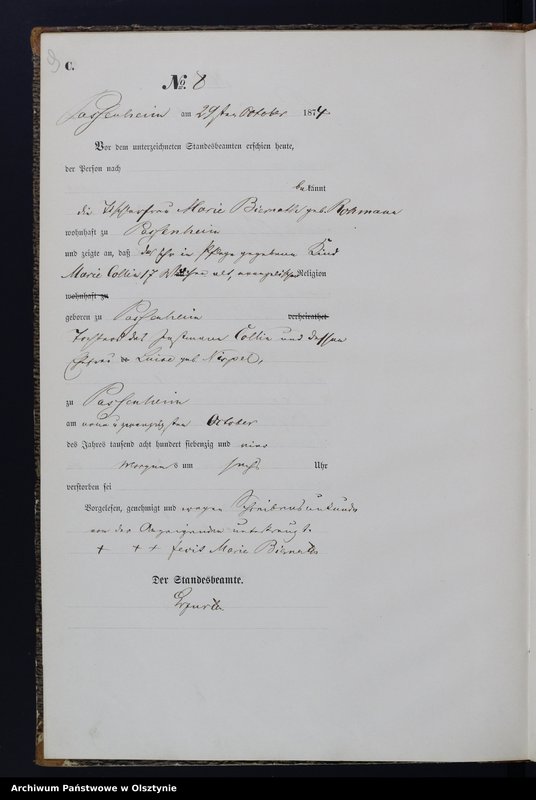 C.
No. 8
Passenheim am 29sten October 1874
Vor dem unterzeichneten Standesbeamten erschien heute,
der Person nach
bekannt
die Marie Biernath geb. Rohmann
wohnhaft zu Passenheim
und zeigte an, daß das ihr in Pflege gegebene Kind
Marie Collin 17 Wochen alt, evangelischer Religion
wohnhaft zu
geboren zu Passenheim verheirathet
Tochter des Collin und dessen
Ehefrau Luise geb
zu Passenheim
am neun u zwanzigsten October
des Jahres tausend acht hundert siebenzig und vier
Morgens um sechs Uhr
verstorben sei
Vorgelesen, genehmigt und wegen Schreibensunkunde
von der Anzeigenden unterkreuzt
+ + + fecit Marie Biernath
Der Standesbeamte.
Archiwum Państwowe w Olsztynie